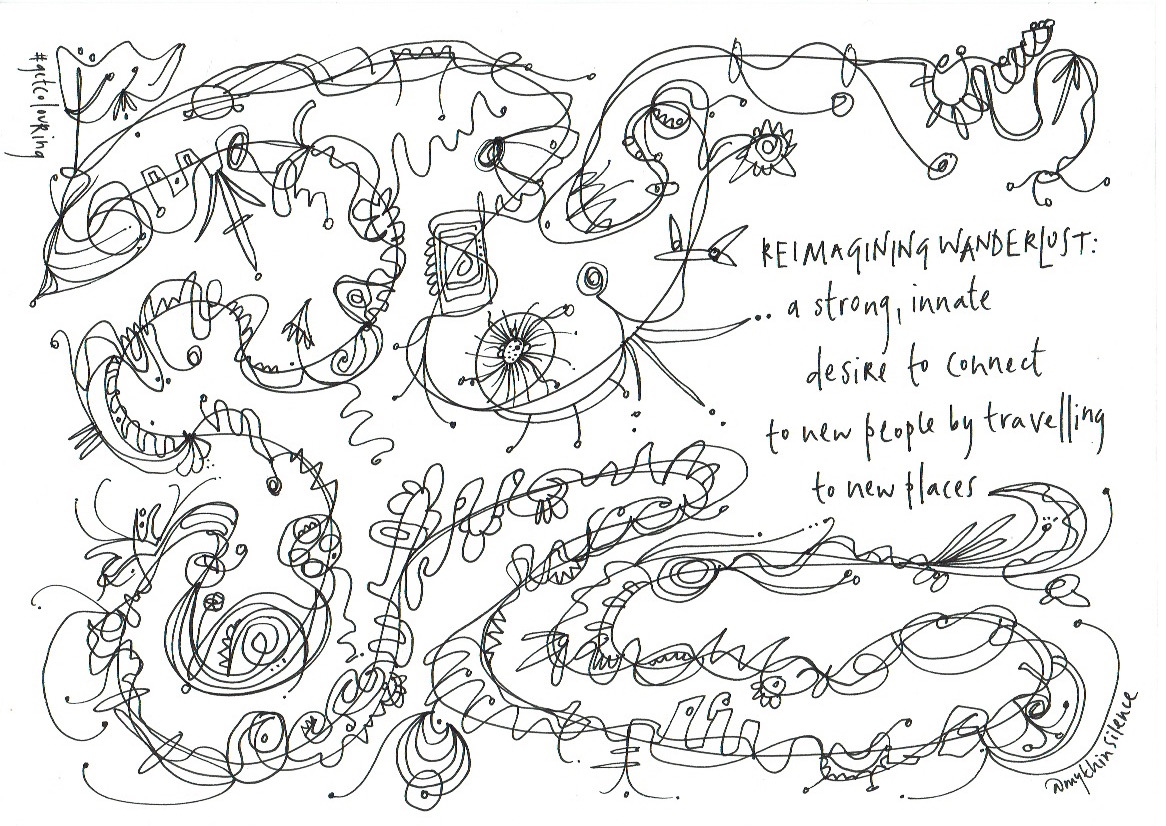 #getcolouring
REIMAGINING WANDERLUST:
... a strong, innate
desire to connect
to new people by travelling
to new places
@mykhinsilence